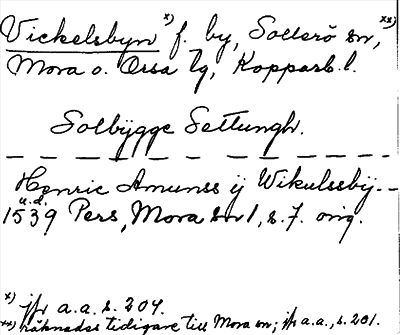 Vickelsbyn x) f. by, Sollerö sn, xx)
Mora o. Orsa tg, Kopparb. l.
Solbÿgge Settungh.
Henric Amunss ÿ Wikulssbÿ
u.d.
1539 Pers, Mora sn 1, s. 7. orig.
x) jfr a.a. s. 204.
xx) räknades tidigare till Mora sn; jfr a.a., s. 201.